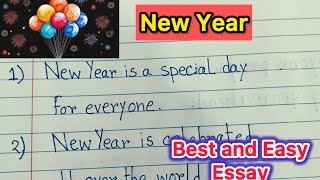 New Year
1) New Year is a special day
for everyone.
2) New Year is celebrated
all over the world
Best and Easy
Essay